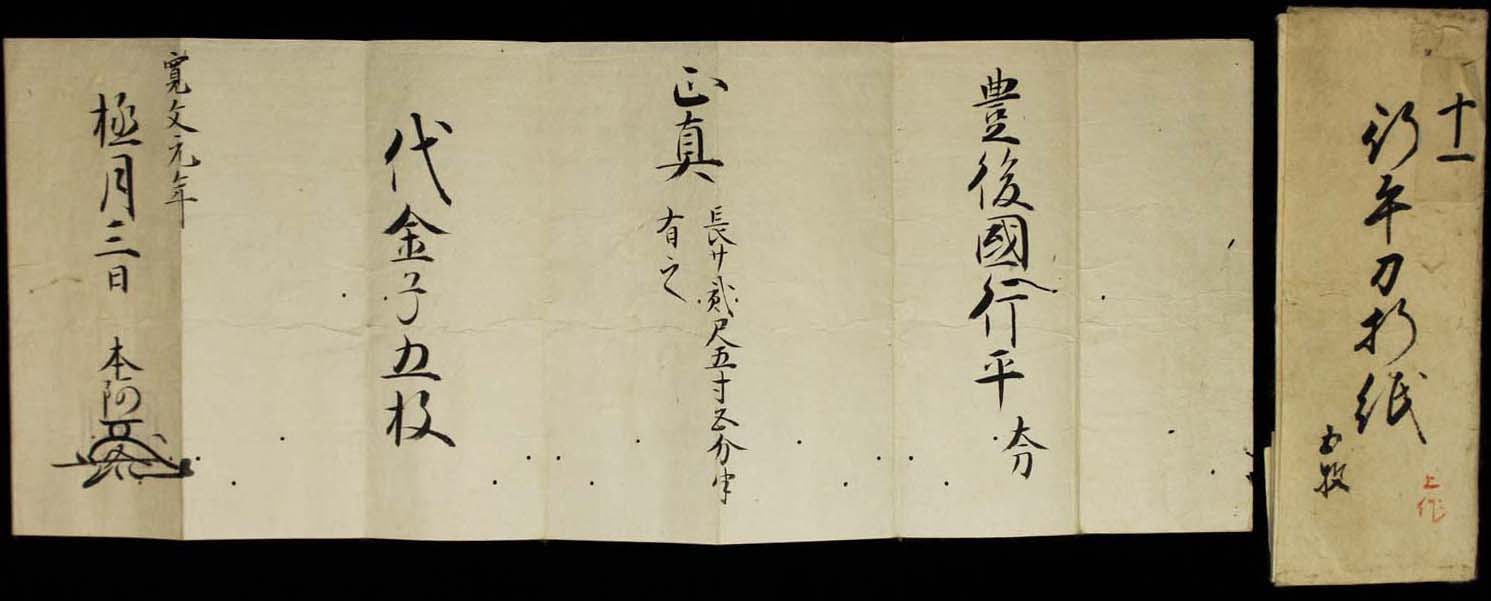 十一
行平刀折紙
五枚
上作
豊後國行平
正真
長サ貳尺五寸五分半
有之
代金子五枚
寛文元年
極月三日
本阿